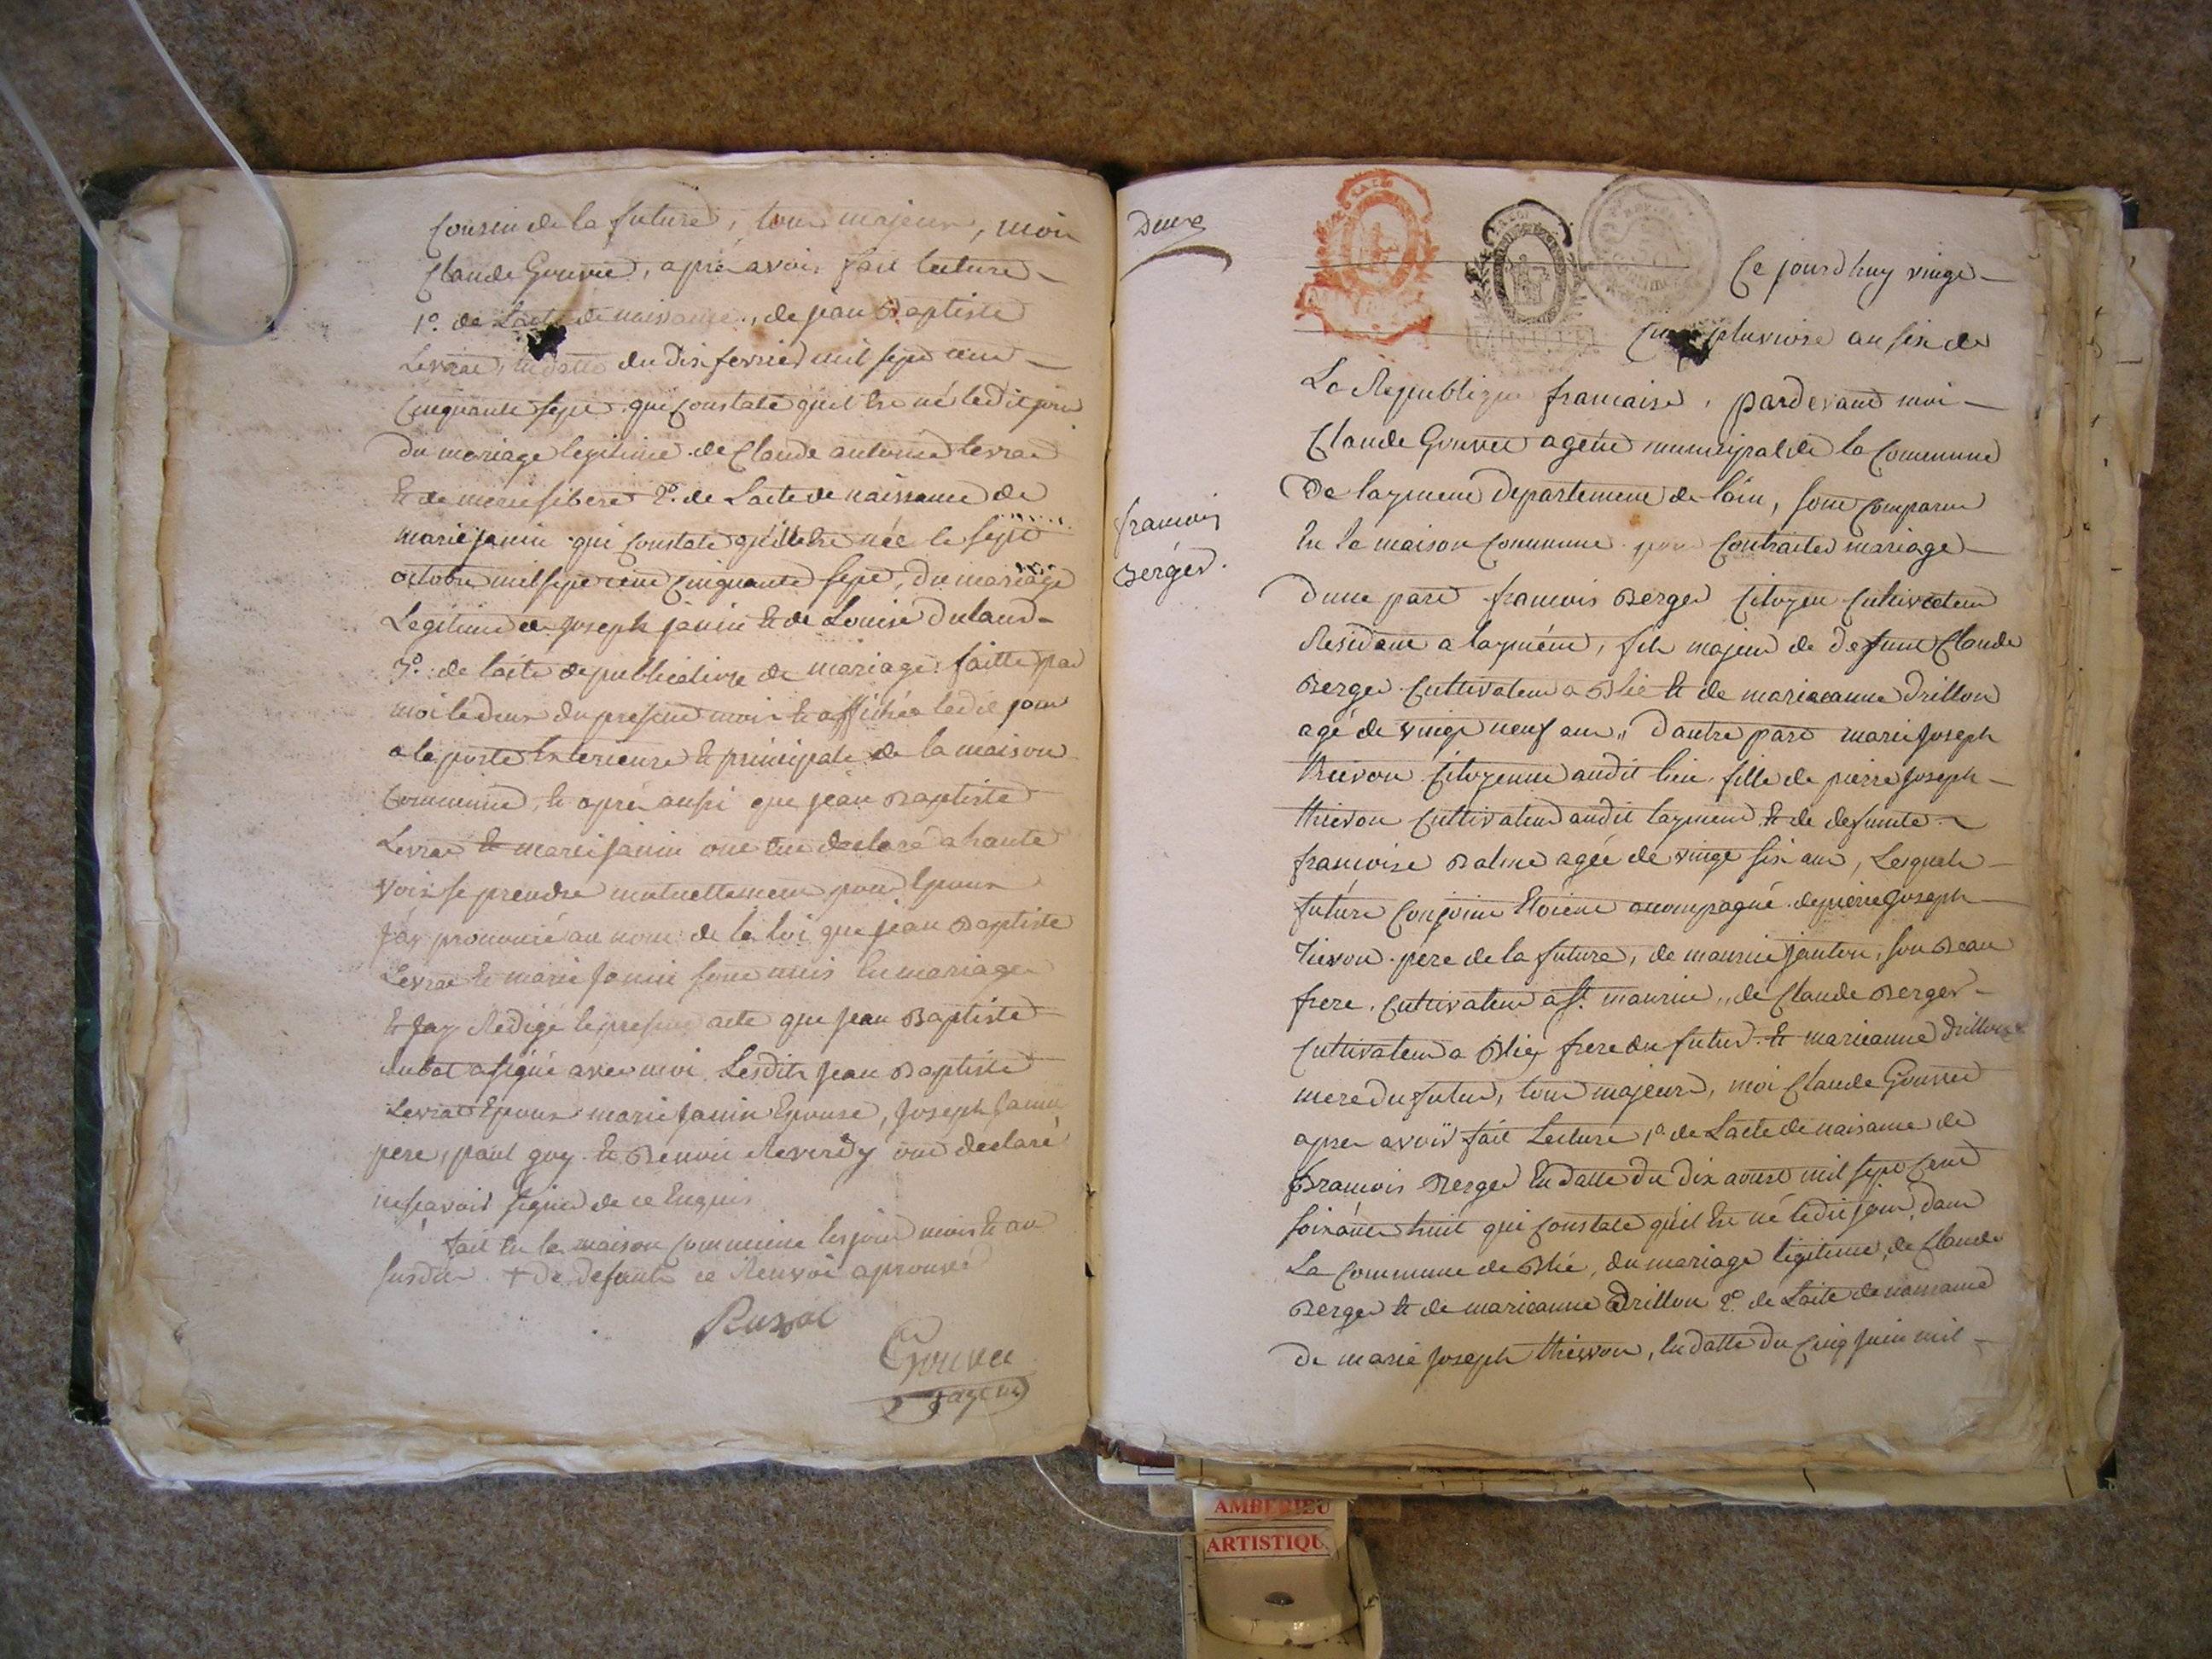 cousin de la future, tous majeurs, moi
Claude Gouvee, apres avoir fait lecture
1º. de Lacte de naissance, de jean Baptiste
Levrat, en datte du dix fevrier mil sept cent
cinquante sept qui constate qu'il est né ledit jour
du mariage legitime de Claude antoine levrat
et de marie sibert 2º. de Lacte de naissance de
marie janin qui constate qu'elle est née le sept
octobre mil sept cent cinquante sept, du mariage
Legitime de joseph janin et de Louise
3º. de lacte de publication de mariage faitte par
moi le deux du present mois et affichée ledit jour
a la porte exterieure et principale de la maison
commune, et après aussi que jean Baptiste
Levrat et marie janin ont eu declaré a haute
voix se prendre mutuellement pour Epoux
jay prononcé au nom de la loi que jean Baptiste
Levrat et marie janin sont unis en mariage
et jay Redigé le present acte que jean Baptiste
a signé avec moi Lesdits jean Baptiste
Levrat Epoux marie janin Epouse, joseph janin
pere, paul guy et Benoit Reverdy ont declaré
ne scavoir signer de ce Enquis
fait en la maison commune les jour mois et an
susdits + de defunte ce Renvoi aprouvé
Gouvee
agent
Duve
Ce jourdhuy vingt
cinq pluviose an six de
La Republique francaise, pardevant moi
Claude Gouvee agent municipal de la Commune
De laymene departement de lain, sont comparus
En la maison commune pour contracter mariage
Dune part francois Berger Citoyen cultivateur
Residant a laymene, fils majeur de defunt Claude
Berger cultivateur a Blié et de marieanne Drillon
agé de vingt neuf ans, dautre part marie joseph
thievon Citoyenne audit lieu fille de pierre joseph
thievon cultivateur audit laymene et de defunte
francoise Balme agée de vingt six ans, Lesquels
futurs conjoints Etoient acompagné de pierre joseph
Tievon pere de la future, de maurice janton, son Beau
frere, cultivateur a St. maurice, de Claude Berger
cultivateur a Blié frere du futur et marieanne drillon
mere du futur, tous majeurs, moi Claude Gouvee
apres avoir fait Lecture 1º. de Lacte de naissance de
francois Berger En datte du dix aoust mil sept cent
soixante huit qui constate quil est né ledit jour, dans
La commune de Blié, du mariage legitime, de Claude
Berger et de marieanne Drillon 2º. de Lacte de naissance
de marie joseph thievon, en datte du cinq juin mil
francois
Berger.
AMBERIEU
ARTISTIQU